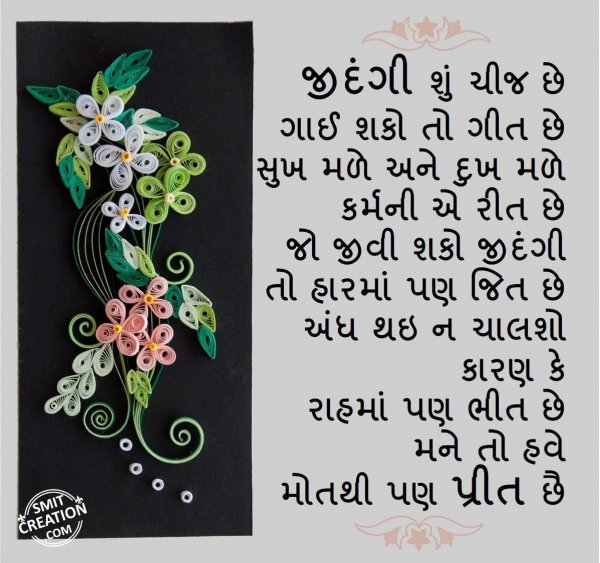 જીદંગી શું ચીજ છે
ગાઈ શકો તો ગીત છે
સુખ મળે અને દુખ મળે
કર્મની એ રીત છે
જો જીવી શકો જીદંગી
તો હારમાં પણ જિત છે
અંધ થઇ ન ચાલશો
કારણ કે
રાહમાં પણ ભીત છે
મને તો હવે
મોતથી પણ પ્રીત છૈ
SMIT
CREATION
.COM